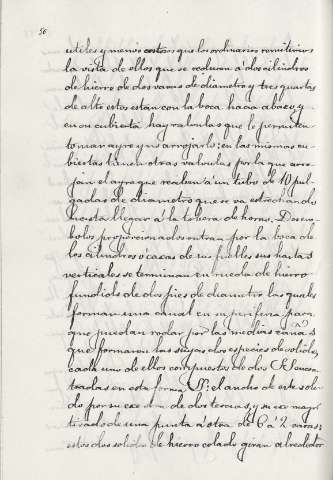 56
utiles y menos costosos que los ordinarios remitiremos
la vista de ellos que se reducen á dos cilindros
de hierro de dos varas de diametro y tres quartas
de alto estos estan con la boca hacia abajo y
en su cubierta hay valvulas que le permiten
tomar ayre y no arrojarlo: en las mismas cu-
biertas tienen otras valvulas por la que arro-
jan el ayre que reciben á un tubo de 10 pul-
gadas de diametro que se va estrechando
hasta llegar á la tobera de horno. Dos em-
bolos proporcionados entran por la boca de
los cilindros o cajas de sus fuelles sus hastas
verticales se terminan en rueda de hierro
fundido de dos pies de diametro las quales
forman una canal en su periferia para
que puedan rodar por las medias cañas
que forman las siejas dos especies de solidos
cada uno de ellos compuestos de dos
trados en esta forma el ancho de este soli-
do por su exe de dos tercias, y su exe mayor
tirado de una punta á otra de 6 á 2 varas:
estos dos solidos de hierro colado giran alrededor